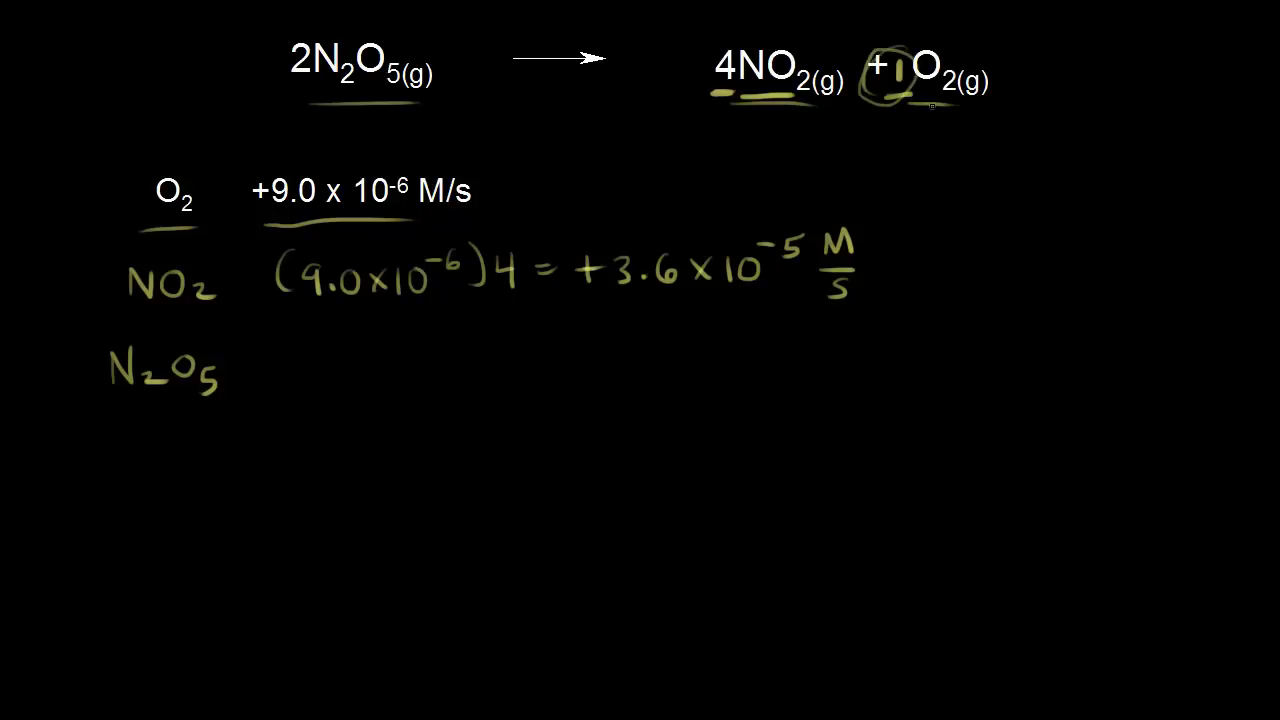 2N₂O₅(g) ⟶ 4NO₂(g) + 1 O₂(g)
O₂ +9.0 x 10⁻⁶ M/s
NO₂ (9.0x10⁻⁶)4 = +3.6x10⁻⁵ M/s
N₂O₅